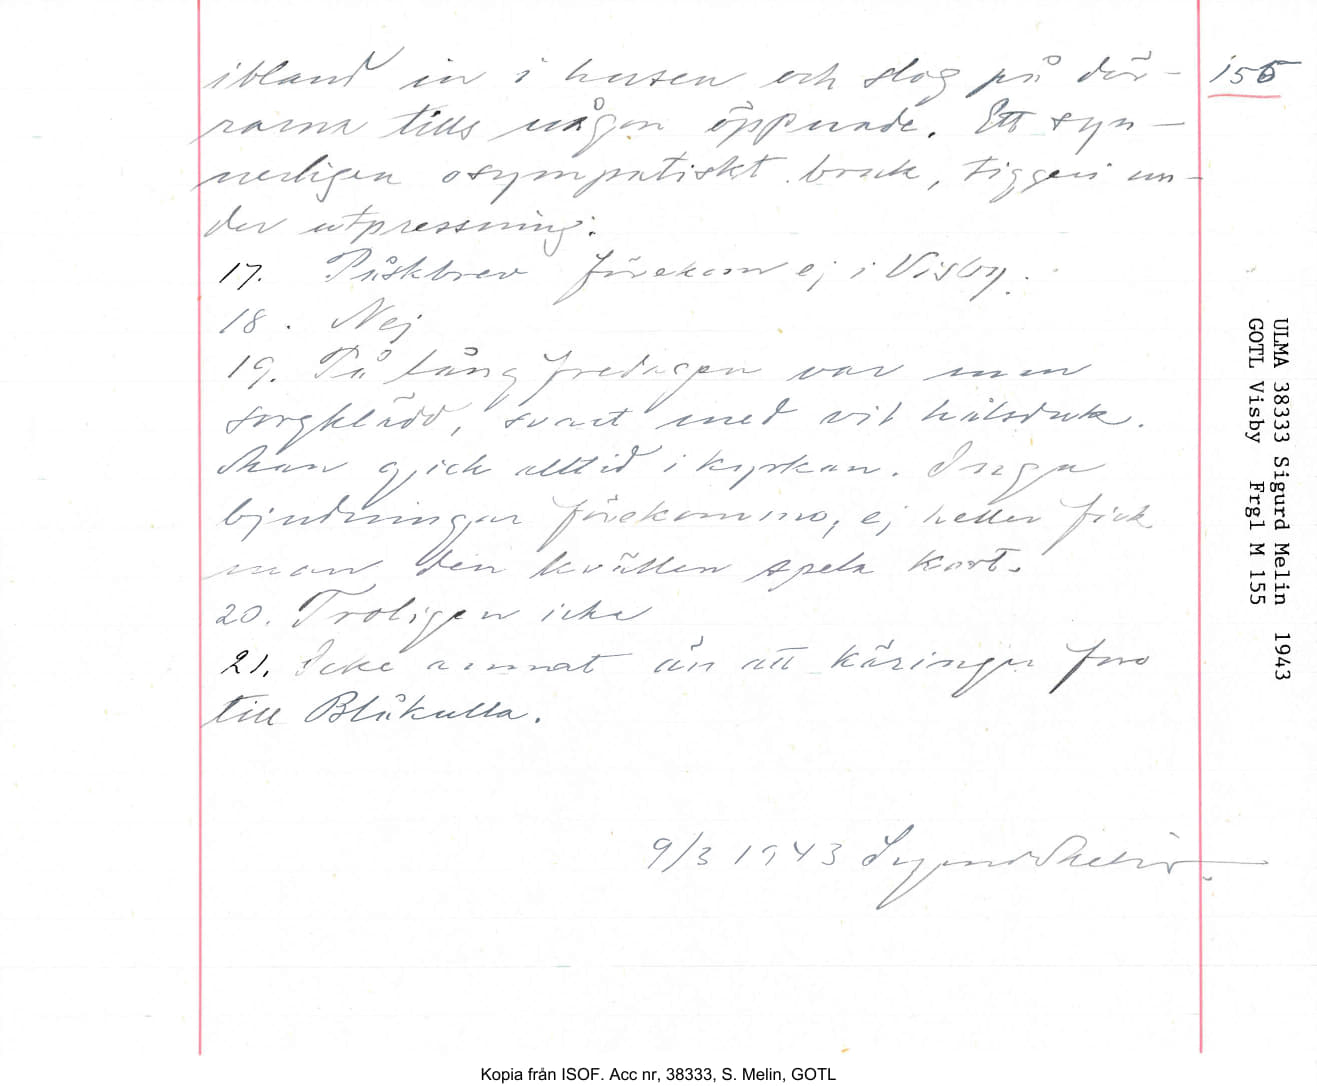 ibland in i husen och slog på dör- 155
rarna tills någon öppnade. Ett syn-
nerligen osympatiskt bruk, tiggeri un-
der utpressning.
17. Påskbrev förekom ej i Visby.
18. Nej
19. På långfredagen var man
sorgklädd, svart med vit halsduk.
Man gick alltid i kyrkan. Inga
bjudningar förekommo, ej heller fick
man den kvällen spela kort.
20. Troligen icke
21. Icke annat än att käringar foro
till Blåkulla.
9/3 1943 Sigurd Melin
ULMA 38333 Sigurd Melin 1943
GOTL Visby Frgl M 155
Kopia från ISOF. Acc nr, 38333, S. Melin, GOTL